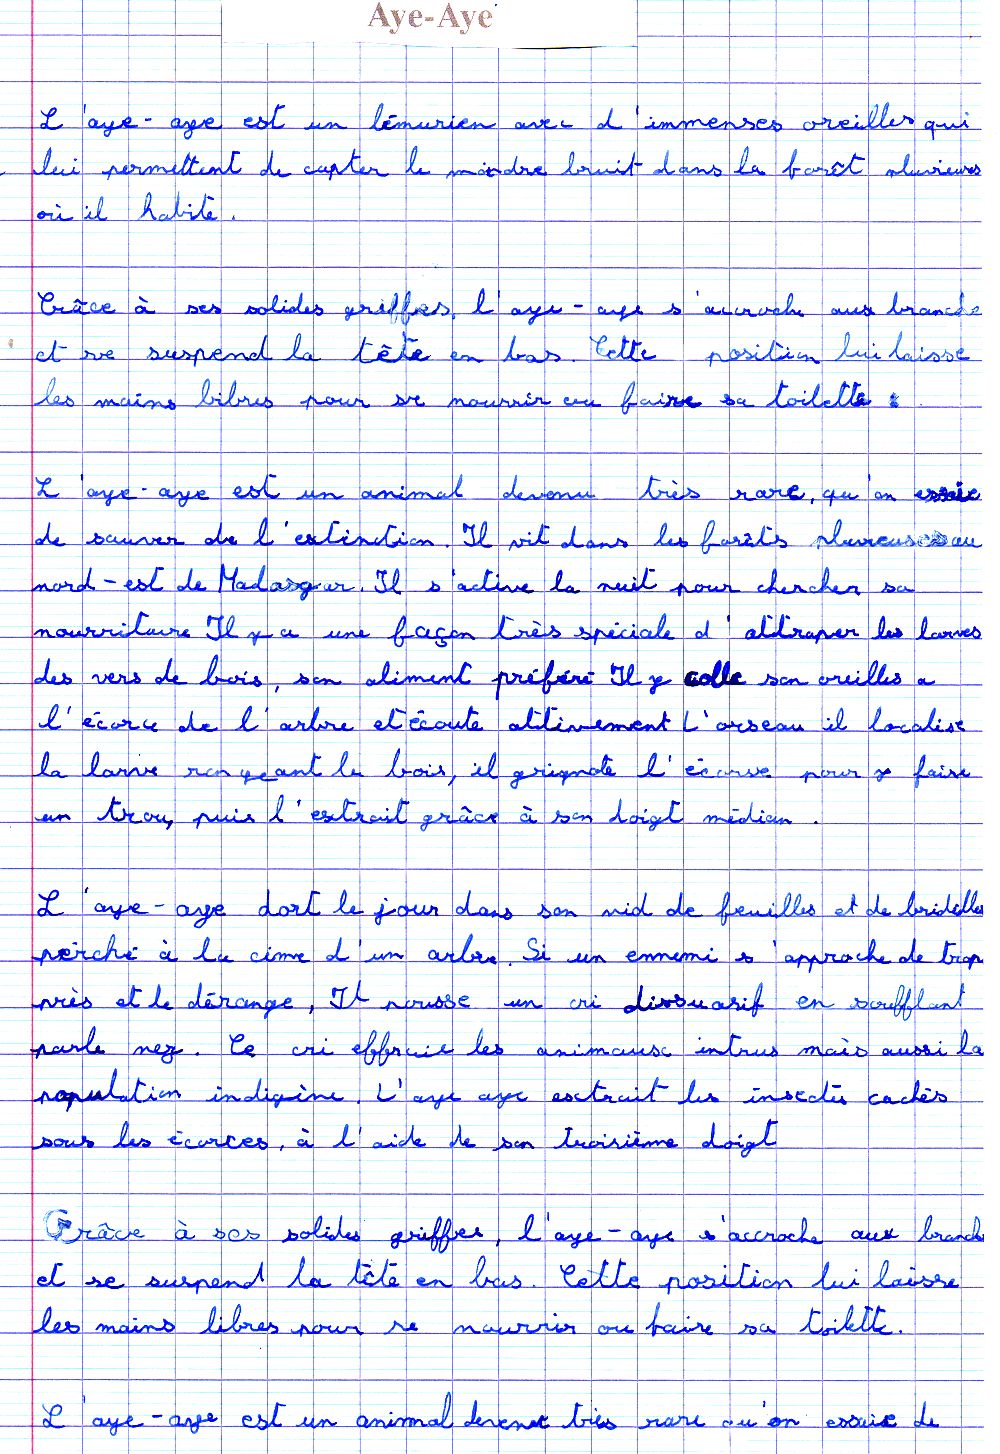 Aye-Aye
L'aye-aye est un lémurien avec d'immenses oreilles qui
lui permettent de capter le moindre bruit dans la forêt pluvieuses
où il habite.
Grâce à ses solides griffes, l'aye-aye s'accroche aux branche
et se suspend la tête en bas. Cette position lui laisse
les mains libres pour se nourrir ou faire sa toilette.
L'aye-aye est un animal devenu très rare, qu'on essaie
de sauver de l'extinction. Il vit dans les forêts pluvieuses au
nord-est de Madasgar. Il s'active la nuit pour chercher sa
nourriture Il y a une façon très spéciale d'attraper les larves
des vers de bois, son aliment préféré Il y colle son oreilles a
l'écorce de l'arbre et écoute attivement L'orseau il localise
la larve rongeant le bois, il grignote l'écorse pour y faire
un trou, puis l'extrait grâce à son doigt médian.
L'aye-aye dort le jour dans son nid de feuilles et de bridelles
perché à la cime d'un arbre. Si un ennemi s'approche de trop
près et le dérange, Il pousse un cri dissuasif en soufflant
par le nez. Ce cri effraie les animaux intrus mais aussi la
population indigène. L'aye aye extrait les insectes cachés
sous les écorces, à l'aide de son troisième doigt
Grâce à ses solides griffes, l'aye-aye s'accroche aux branche
et se suspend la tête en bas. Cette position lui laisse
les mains libres pour se nourrir ou faire sa toilette.
L'aye-aye est un animal devenu très rare qu'on essaie de